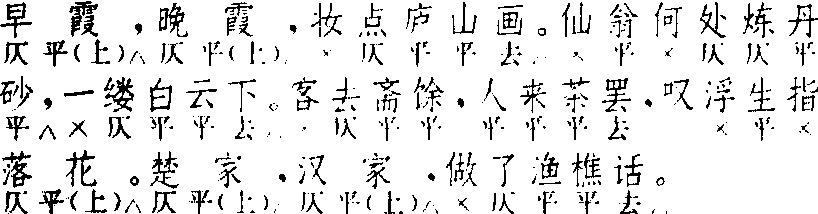 早霞，晚霞，妆点庐山画。仙翁何处炼丹
仄平(上)△仄平(上)△×仄平平去△×平×仄仄平
砂，一缕白云下。客去斋馀，人来茶罢，叹浮生指
平△×仄平平去△×仄平平，平平平去×平×
落花。楚家，汉家，做了渔樵话。
仄平(上)△仄平(上)△仄平(上)△×仄平平去△